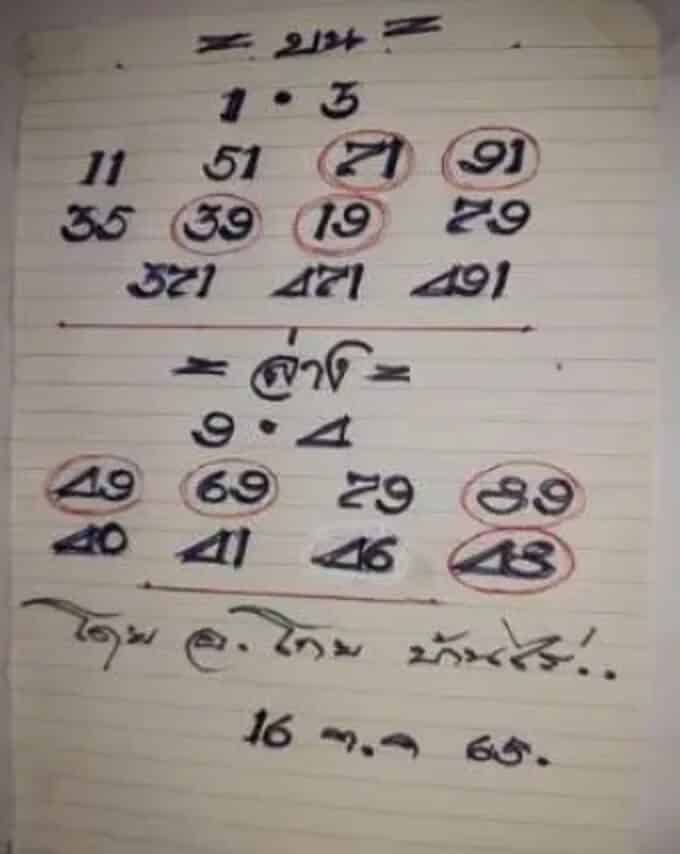 = บน =
1 • 3
11 51 71 91
35 39 19 79
371 471 491
= ล่าง =
9 • 4
49 69 79 89
40 41 46 48
โดย อ. โทม บ้านไร่..
16 ต.ค 65.